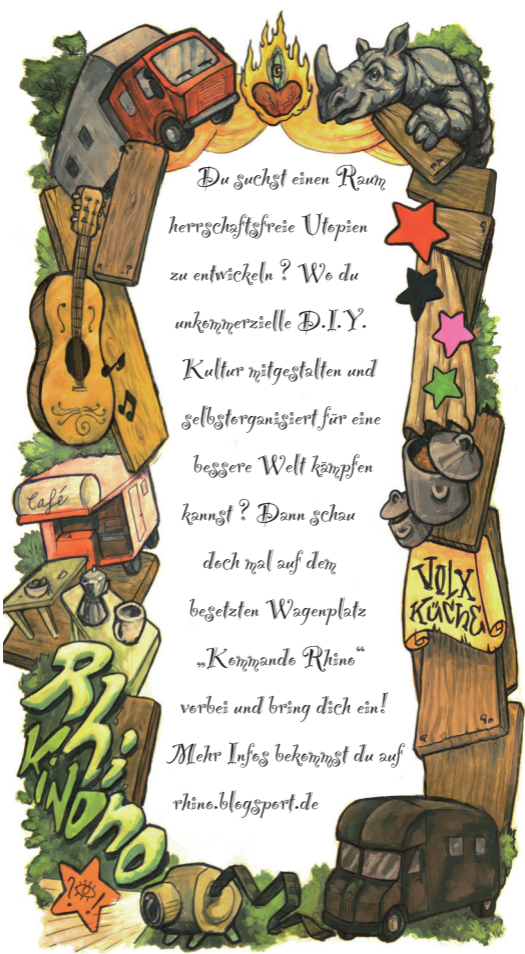 Du suchst einen Raum
herrschaftsfreie Utopien
zu entwickeln ? Wo du
unkommerzielle D.I.Y.
Kultur mitgestalten und
selbstorganisiert für eine
bessere Welt kämpfen
kannst ? Dann schau
doch mal auf dem
besetzten Wagenplatz
„Kommando Rhino“
vorbei und bring dich ein!
Mehr Infos bekommst du auf
rhino.blogsport.de
Café
VOLX
KÜCHE
Rhi
KiNONO
? !